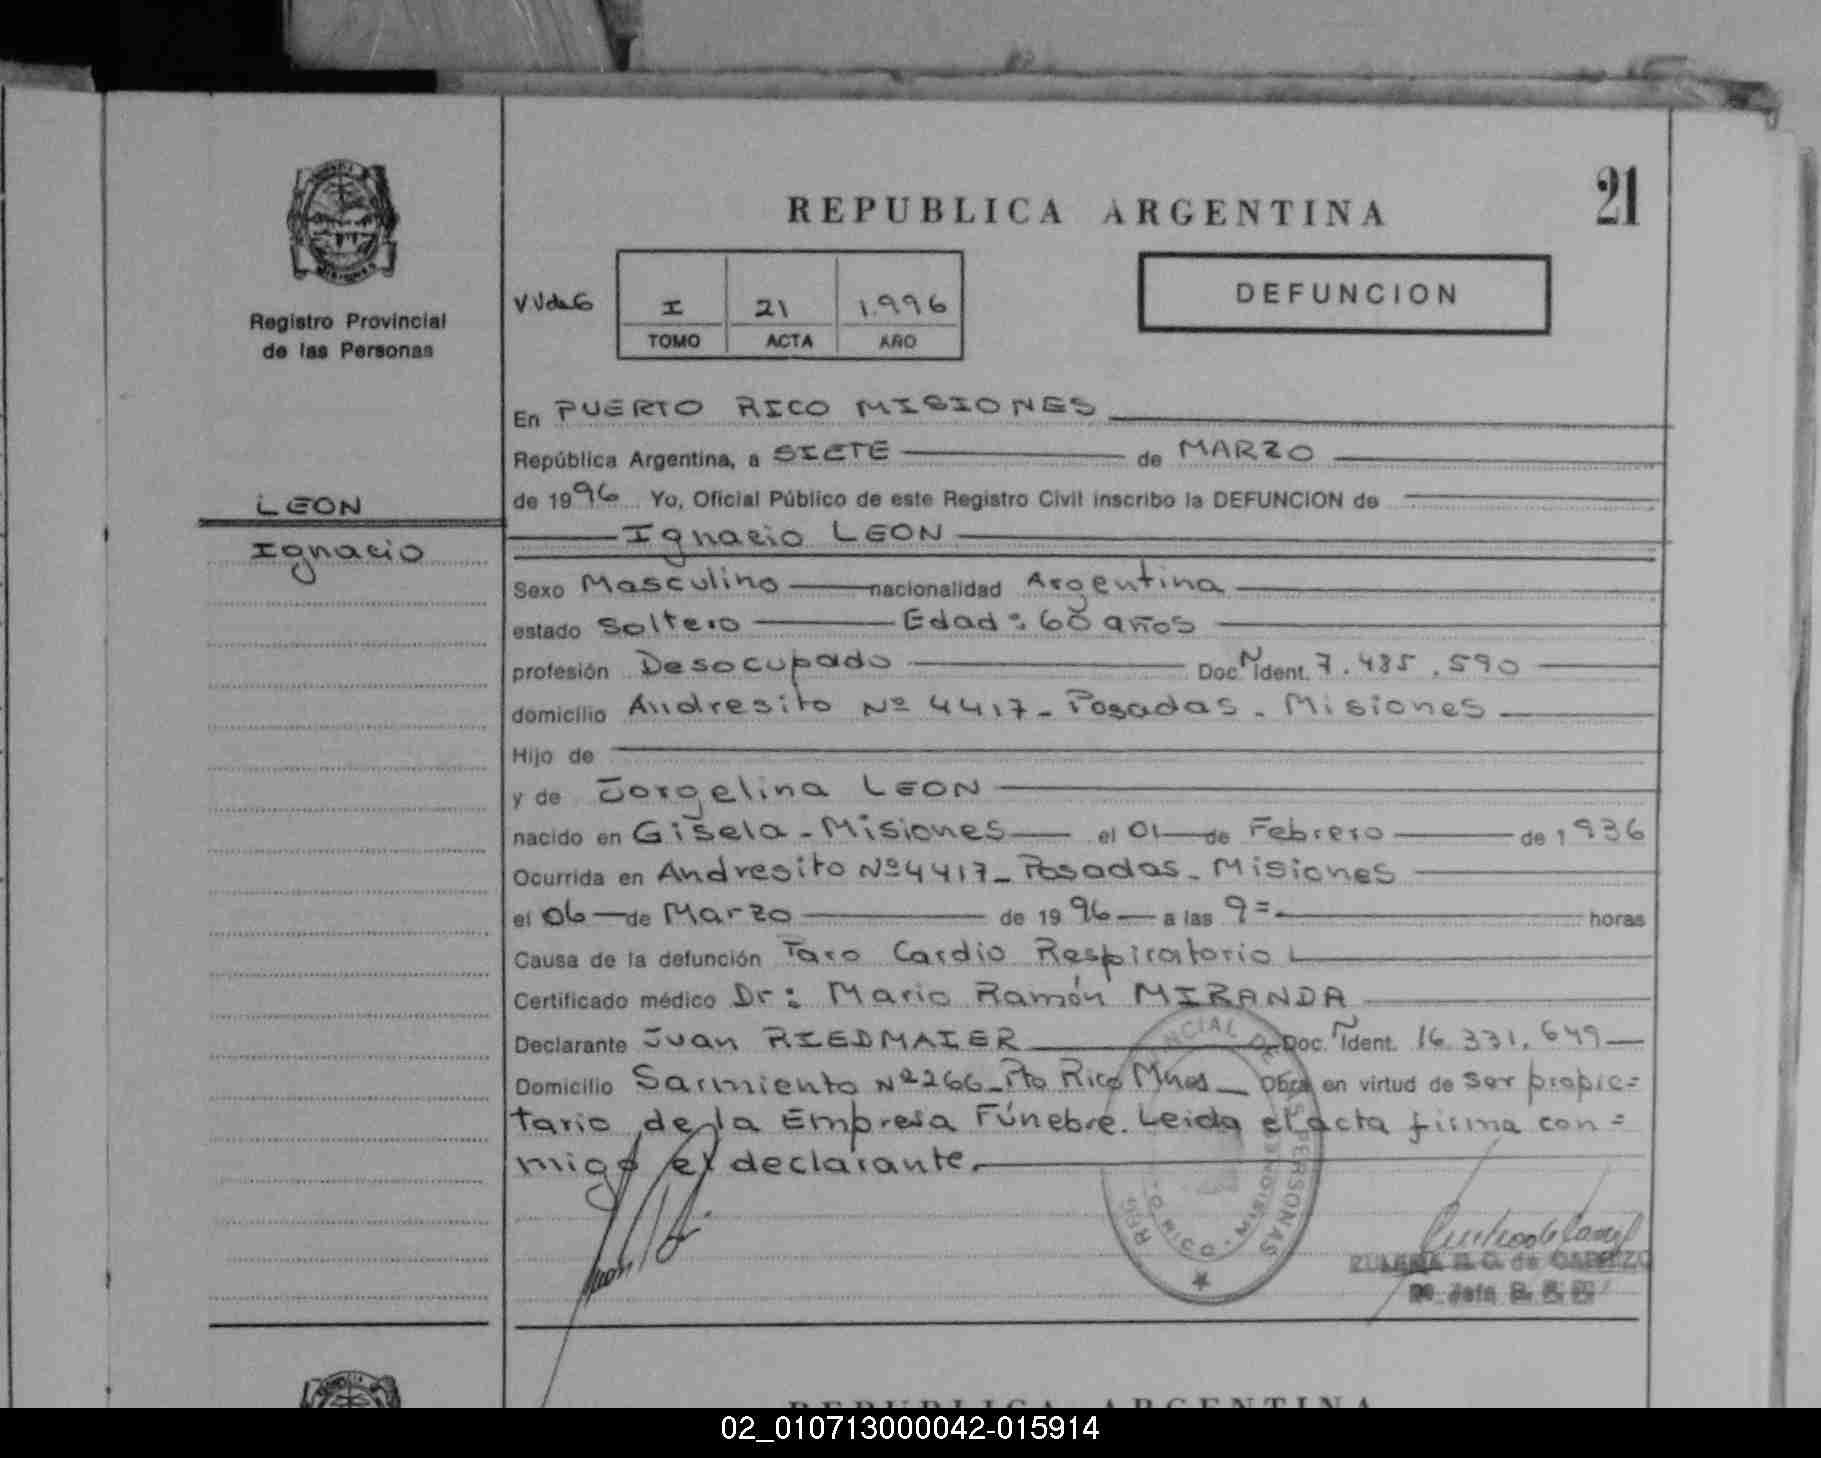 21
REPUBLICA ARGENTINA
I 21 1.996
TOMO ACTA AÑO
DEFUNCION
Registro Provincial
de las Personas
LEON
Ignacio
En PUERTO RICO MISIONES
República Argentina, a SIETE de MARZO
de 1996 Yo, Oficial Público de este Registro Civil inscribo la DEFUNCION de
Ignacio LEON
Sexo Masculino nacionalidad Argentina
estado Soltero Edad: 60 años
profesión Desocupado Doc. N Ident. 7.485.590
domicilio Andresito Nº 4417 - Posadas - Misiones
Hijo de
y de Jorgelina LEON
nacido en Gisela - Misiones el 01 de Febrero de 1936
Ocurrida en Andresito Nº 4417 - Posadas - Misiones
el 06 de Marzo de 1996 a las 9 horas
Causa de la defunción Paro Cardio Respiratorio
Certificado médico Dr: Mario Ramón MIRANDA
Declarante Juan RIEDMAIER Doc. N Ident. 16.331.649
Domicilio Sarmiento Nº 266 - Pto Rico Mnes Obra en virtud de ser propie=
tario de la Empresa Fúnebre. Leida el acta firma con=
migo el declarante.
REPUBLICA ARGENTINA
02_010713000042-015914